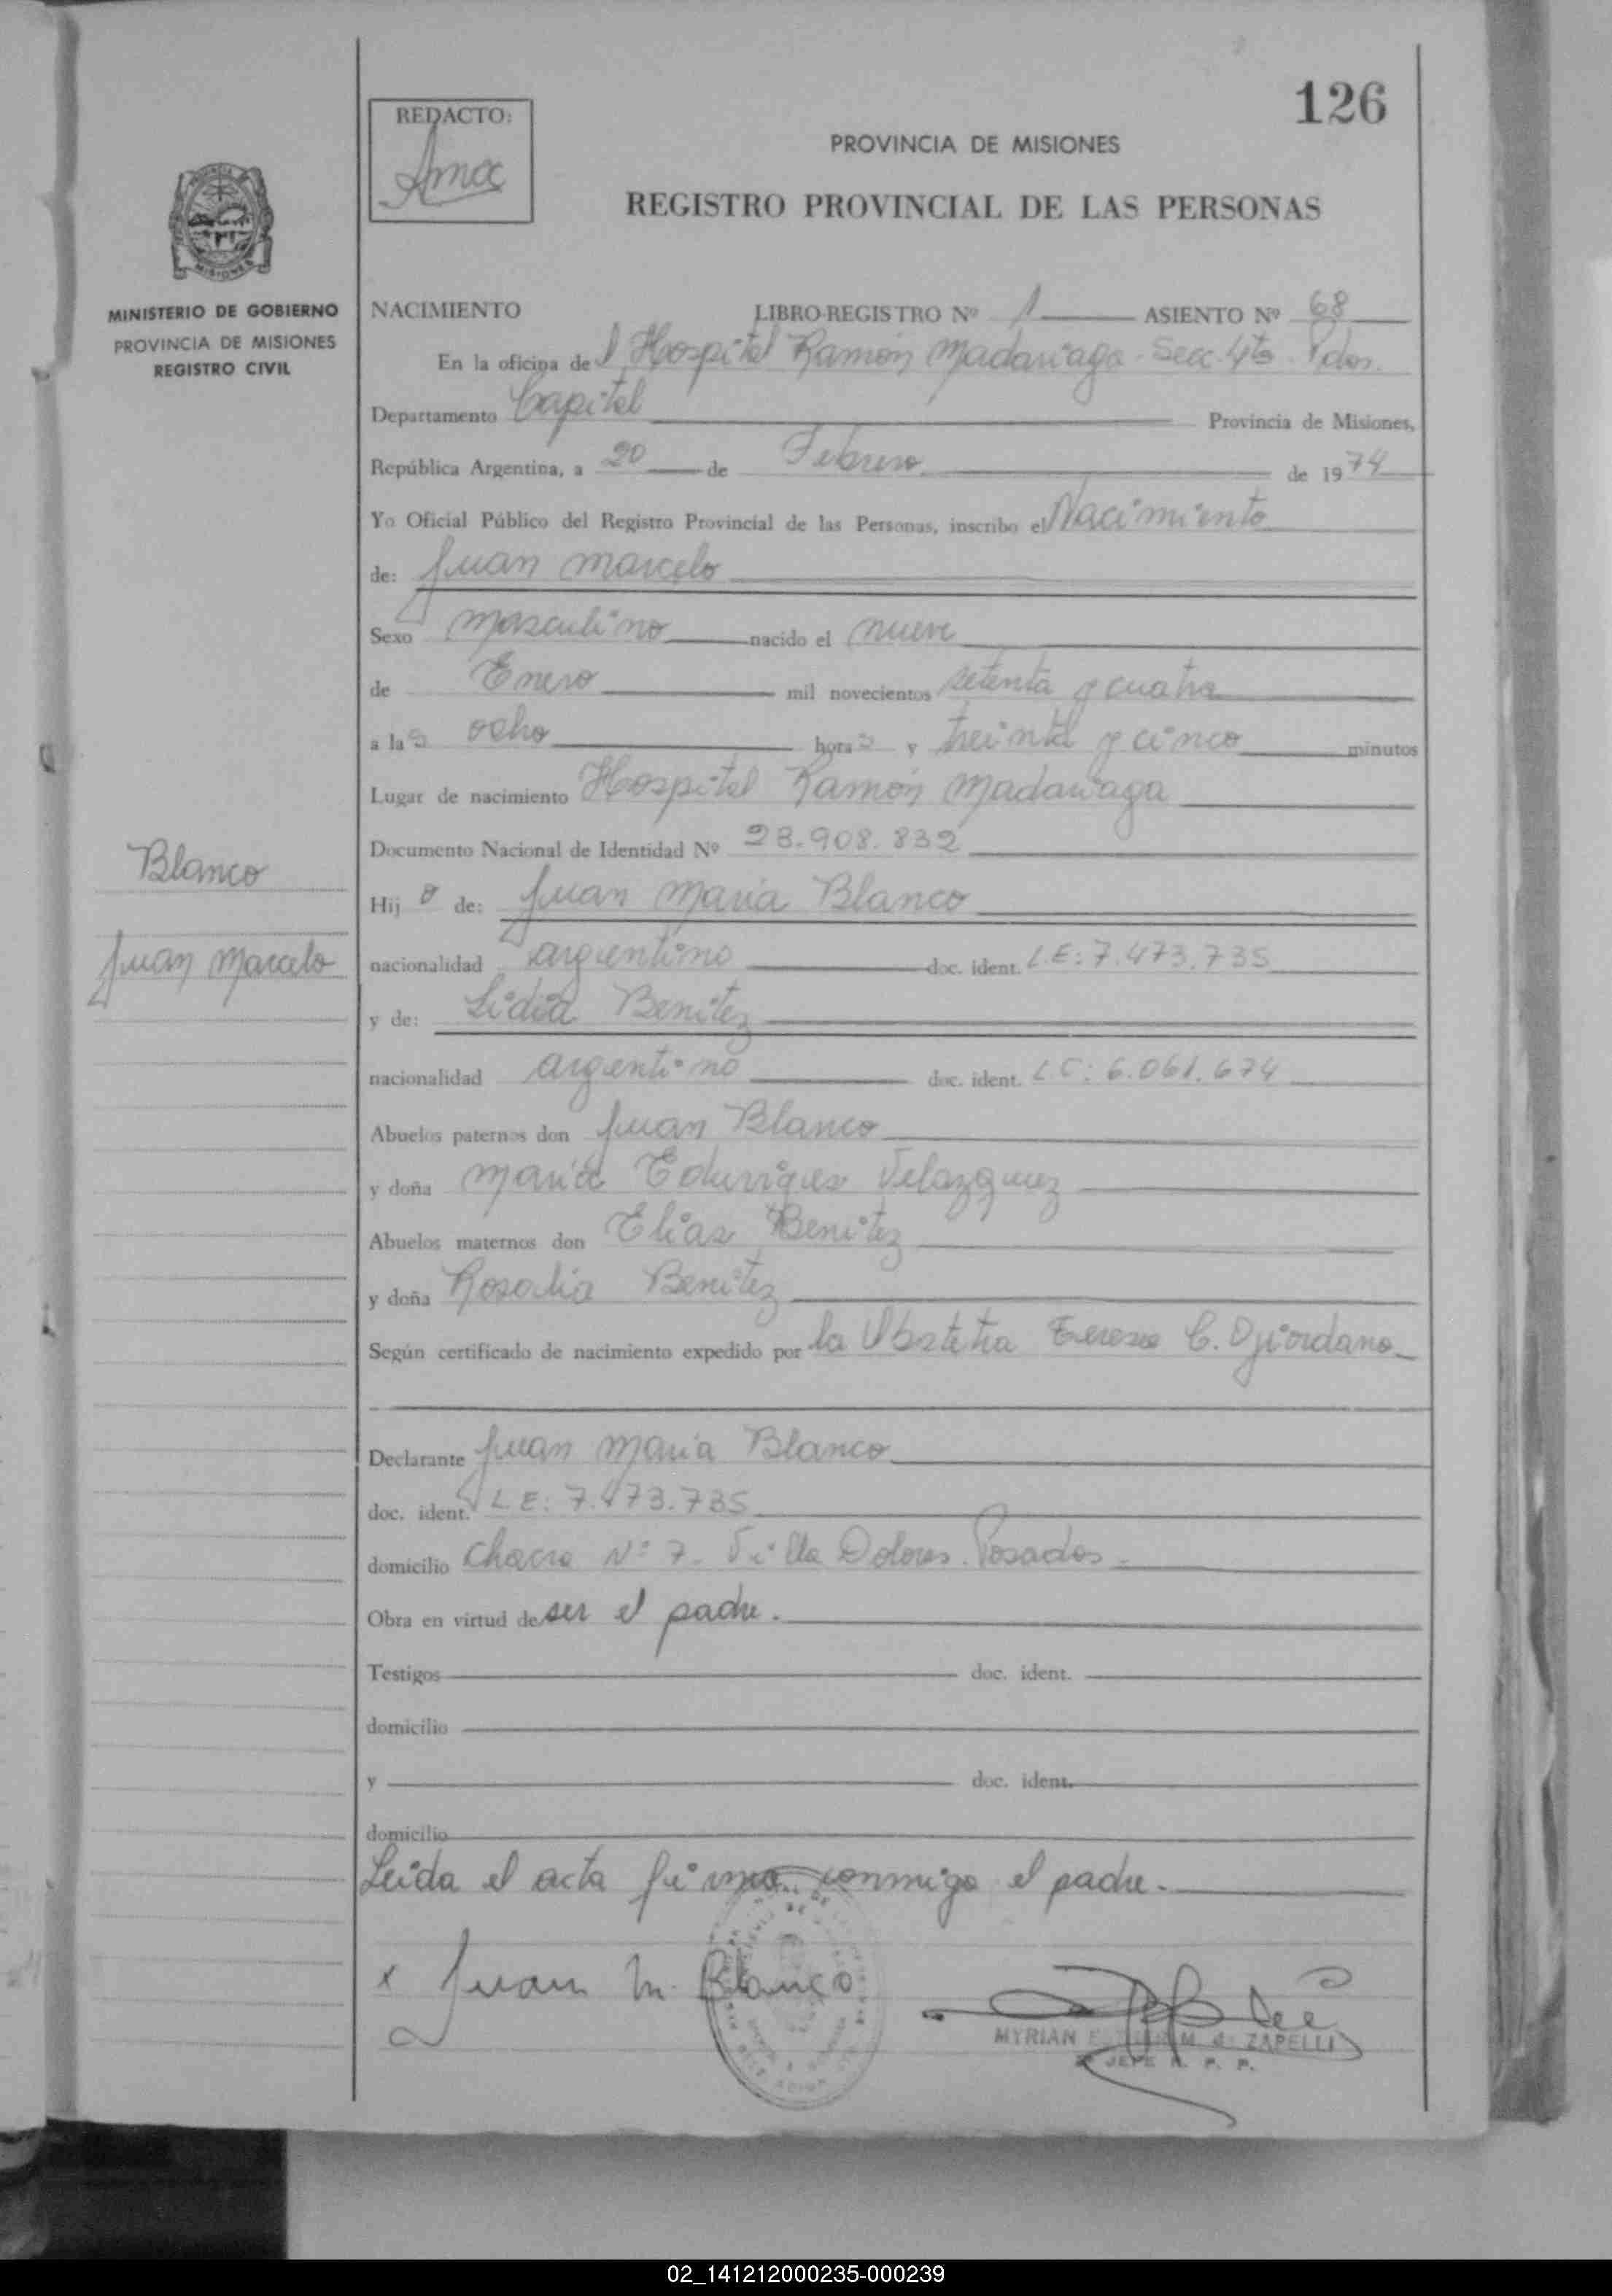 126
REDACTO:
PROVINCIA DE MISIONES
REGISTRO PROVINCIAL DE LAS PERSONAS
MISIONES
MINISTERIO DE GOBIERNO
PROVINCIA DE MISIONES
REGISTRO CIVIL
NACIMIENTO LIBRO-REGISTRO Nº 1 ASIENTO Nº 68
En la oficina del Hospital Ramón Madariaga - Secc. 4ta. Pdas.
Departamento Capital Provincia de Misiones,
República Argentina, a 20 de Febrero de 1974
Yo Oficial Público del Registro Provincial de las Personas, inscribo el Nacimiento
de: Juan Marcelo
Sexo Masculino nacido el nueve
de Enero mil novecientos setenta y cuatro
a las ocho horas y treinta y cinco minutos
Lugar de nacimiento Hospital Ramón Madariaga
Documento Nacional de Identidad Nº 23.908.832
Blanco
Hijo de: Juan María Blanco
Juan Marcelo
nacionalidad argentino doc. ident. L.E: 7.473.735
y de: Lidia Benitez
nacionalidad argentino doc. ident. L.C: 6.061.674
Abuelos paternos don Juan Blanco
y doña María Velazquez
Abuelos maternos don Elias Benitez
y doña Rosalia Benitez
Según certificado de nacimiento expedido por la Obstetra Teresa C.
Declarante Juan María Blanco
doc. ident. L E: 7.473.735
domicilio Chacra Nº 7. Villa Dolores. Posadas.
Obra en virtud de ser el padre.
Testigos doc. ident.
domicilio
y doc. ident.
domicilio
Leida el acta firma conmigo el padre.
x Juan M. Blanco
MYRIAN M. de ZAPELLI
JEFE R. P. P.
02_141212000235-000239